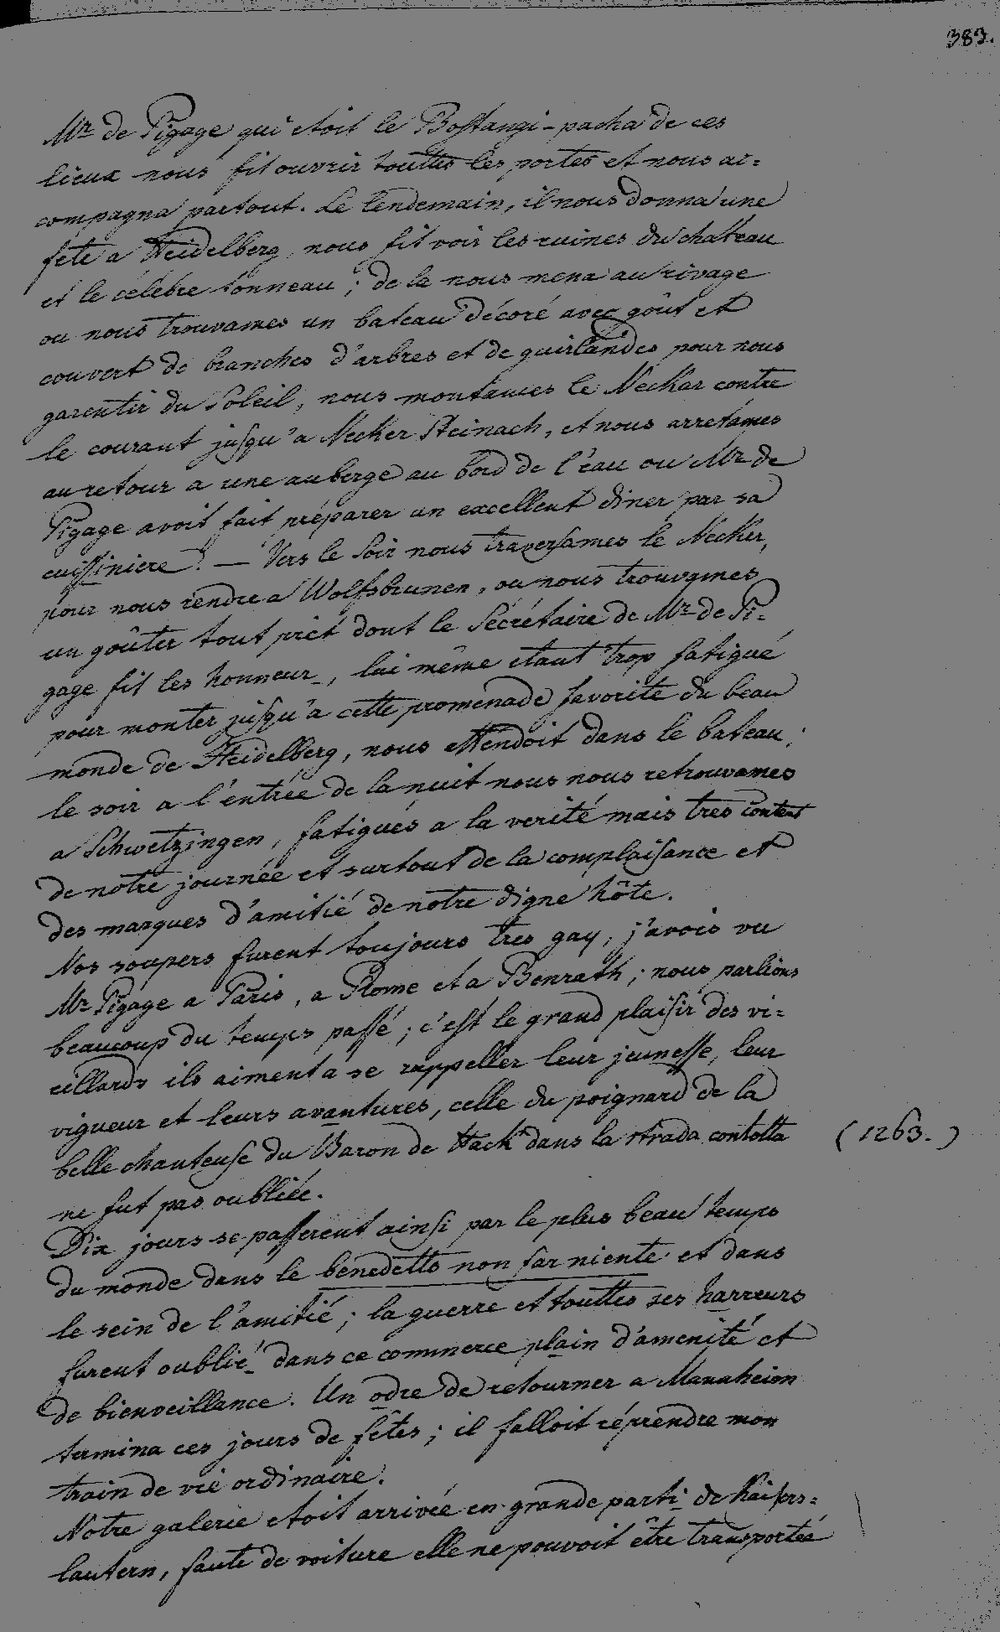 383.
Mr. de Pigage qui etoit le Bostangi-pacha de ces
lieux nous fit ouvrir touttes les portes et nous ac=
compagna partout. Le lendemain, il nous donna une
fete a Heidelberg, nous fit voir les ruines du chateau
et le célébre tonneau; de la nous mena au rivage
ou nous trouvames un bateau décoré avec goût et
couvert de branches d'arbres et de guirlandes pour nous
garentir du Soleil, nous montames le Neckar contre
le courant jusqu'a Necker Steinach, et nous arretames
au retour a une auberge au bord de l'eau ou Mr. de
Pigage avoit fait préparer un excellent diner par sa
cuissiniere. — Vers le soir nous traversames le Necker,
pour nous rendre a Wolfsbrunen, ou nous trouvames
un goûter tout prêt dont le Sécrétaire de Mr. de Pi=
gage fit les honneur, lui même etant trop fatigué
pour monter jusqu'a cette promenade favorite du beau
monde de Heidelberg, nous attendoit dans le bateau;
le soir a l'entrée de la nuit nous nous retrouvames
a Schwetzingen, fatigués a la verité mais tres content
de notre journée et surtout de la complaisance et
des marques d'amitié de notre digne hôte.
Nos soupers furent toujours tres gay, j'avois vu
Mr. Pigage a Paris, a Rome et a Benrath; nous parlions
beaucoup du temps passé; c'est le grand plaisir des vi=
eillards ils aiment a se rappeller leur jeunesse, leur
vigueur et leurs avantures, celle du poignard de la
belle chanteuse du Baron de Hack dans la strada contotta
(1263.)
ne fut pas oubliée.
Dix jours se passerent ainsi par le plus beau temps
du monde dans le benedetto non far niente et dans
le sein de l'amitié; la guerre et touttes ses harreurs
furent oublié dans ce commerce plain d'amenité et
de bienveillance. Un odre de retourner a Mannheim
termina ces jours de fêtes; il falloit réprendre mon
train de vie ordinaire.
Notre galerie etoit arrivée en grande parti de Kaisers=
lautern, faute de voiture elle ne pouvoit être transportée